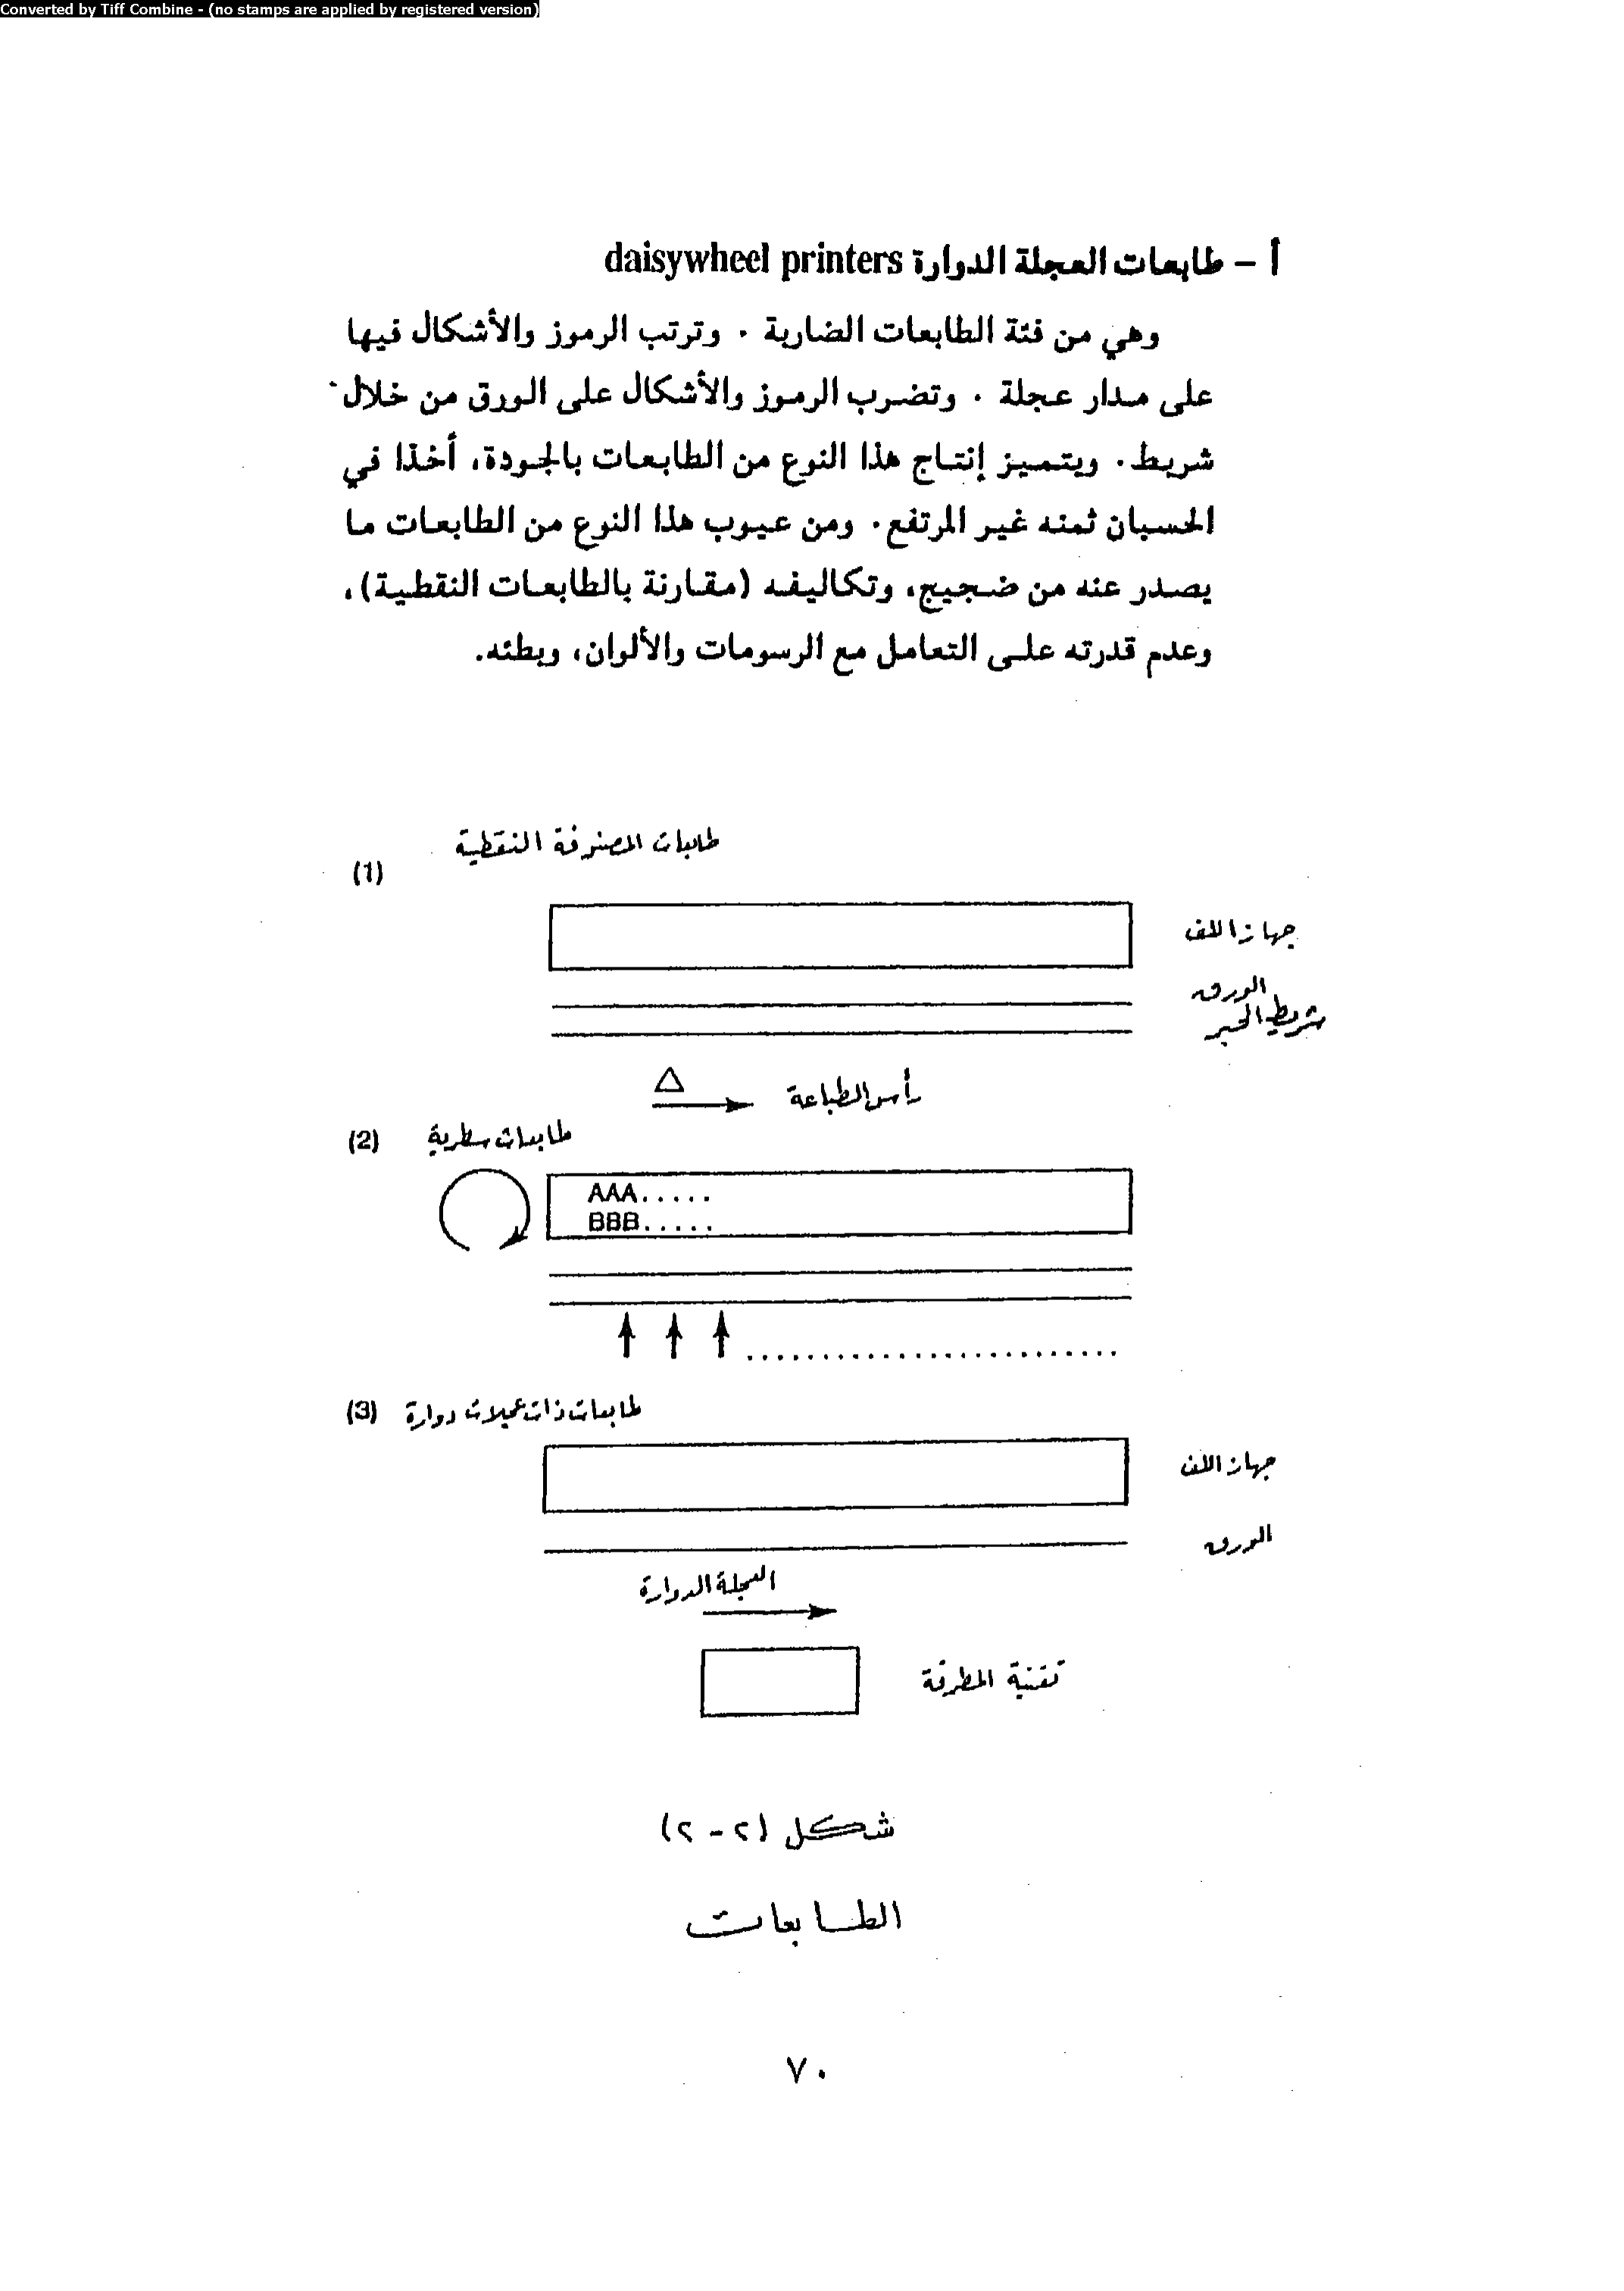 Converted by Tiff Combine - (no stamps are applied by registered version)
أ – طابعات العجلة الدوارة daisywheel printers
وهي من فئة الطابعات الضاربة . وترتب الرموز والأشكال فيها
على مدار عجلة . وتضرب الرموز والأشكال على الورق من خلال
شريط . ويتميز إنتاج هذا النوع من الطابعات بالجودة، أخذا في
الحسبان ثمنه غير المرتفع . ومن عيوب هذا النوع من الطابعات ما
يصدر عنه من ضجيج، وتكاليفه (مقارنة بالطابعات النقطية)،
وعدم قدرته على التعامل مع الرسومات والألوان، وبطئه.
(1) طابعات المصفوفة النقطية
جهاز اللف
الورق
شريط الحبر
رأس الطباعة
(2) طابعات سطرية
AAA.....
BBB.....
(3) طابعات ذات عجيلات دوارة
جهاز اللف
الورق
العجلة الدوارة
تقنية المطرقة
شكل (٢-٢)
الطابعات
٧٠